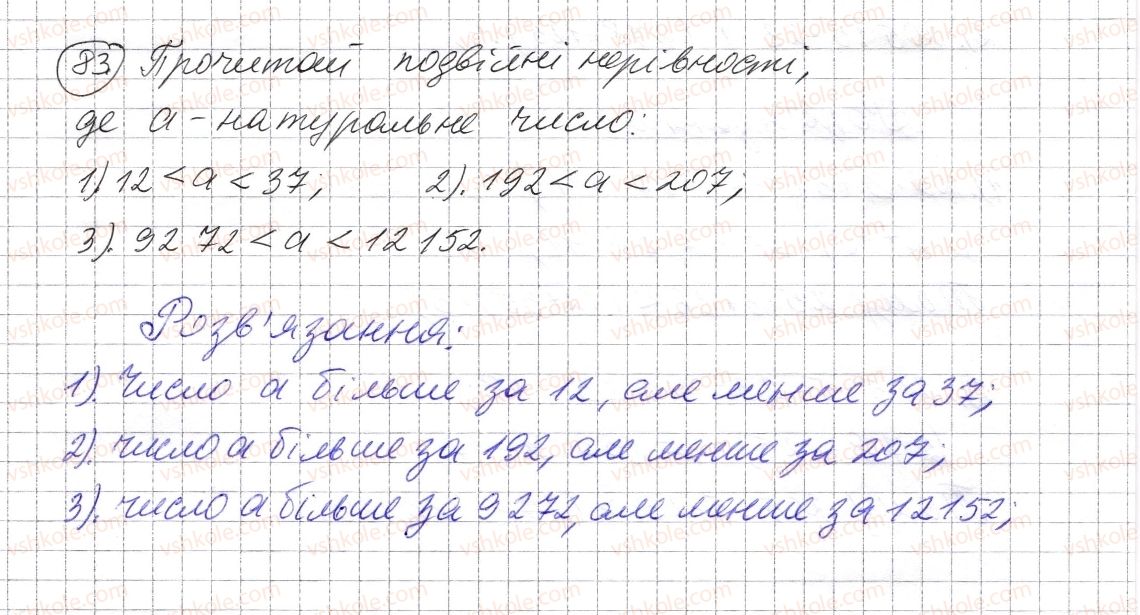 83. Прочитай подвійні нерівності,
де а - натуральне число:
1). 12 < а < 37; 2). 192 < а < 207;
3). 9272 < а < 12 152.
Розв'язання:
1). Число а більше за 12, але менше за 37;
2). число а більше за 192, але менше за 207;
3). число а більше за 9272, але менше за 12152;